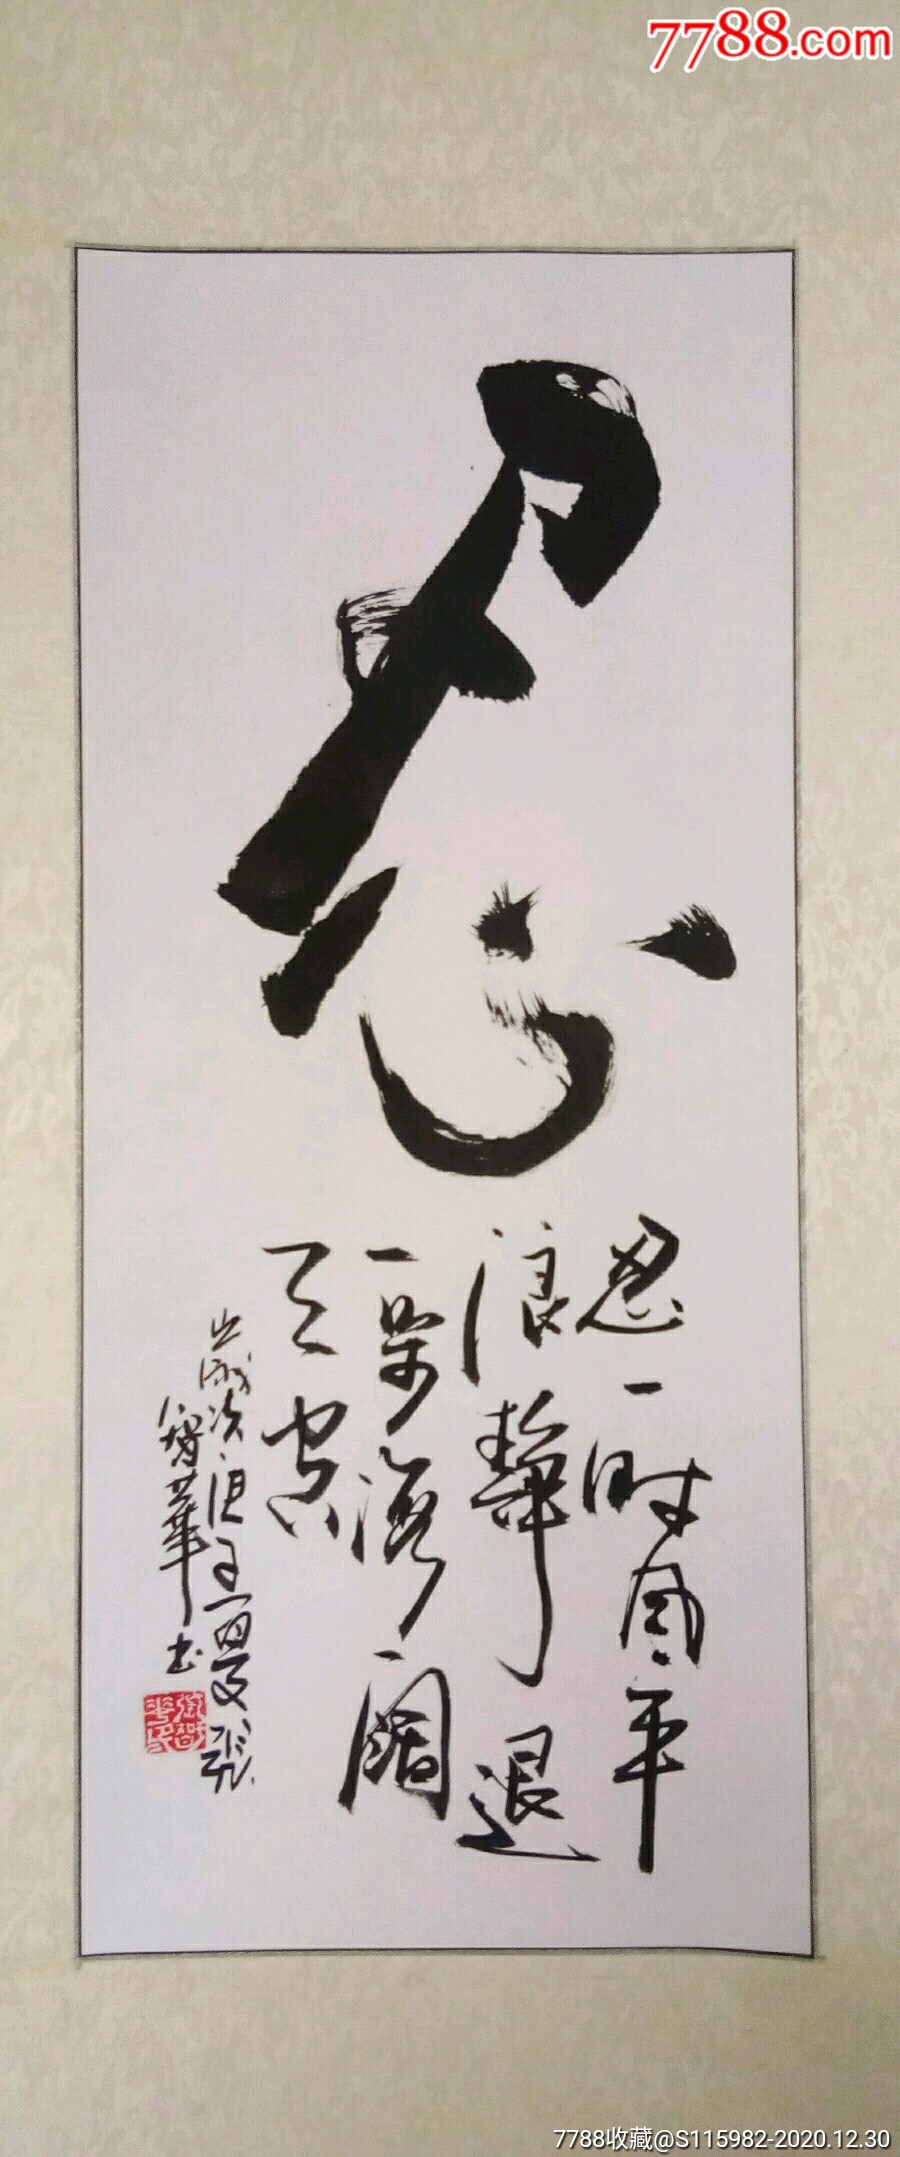 7788.com
忍
忍一时风平
浪静退
一步海阔
天空
智华书
7788收藏@S115982-2020.12.30